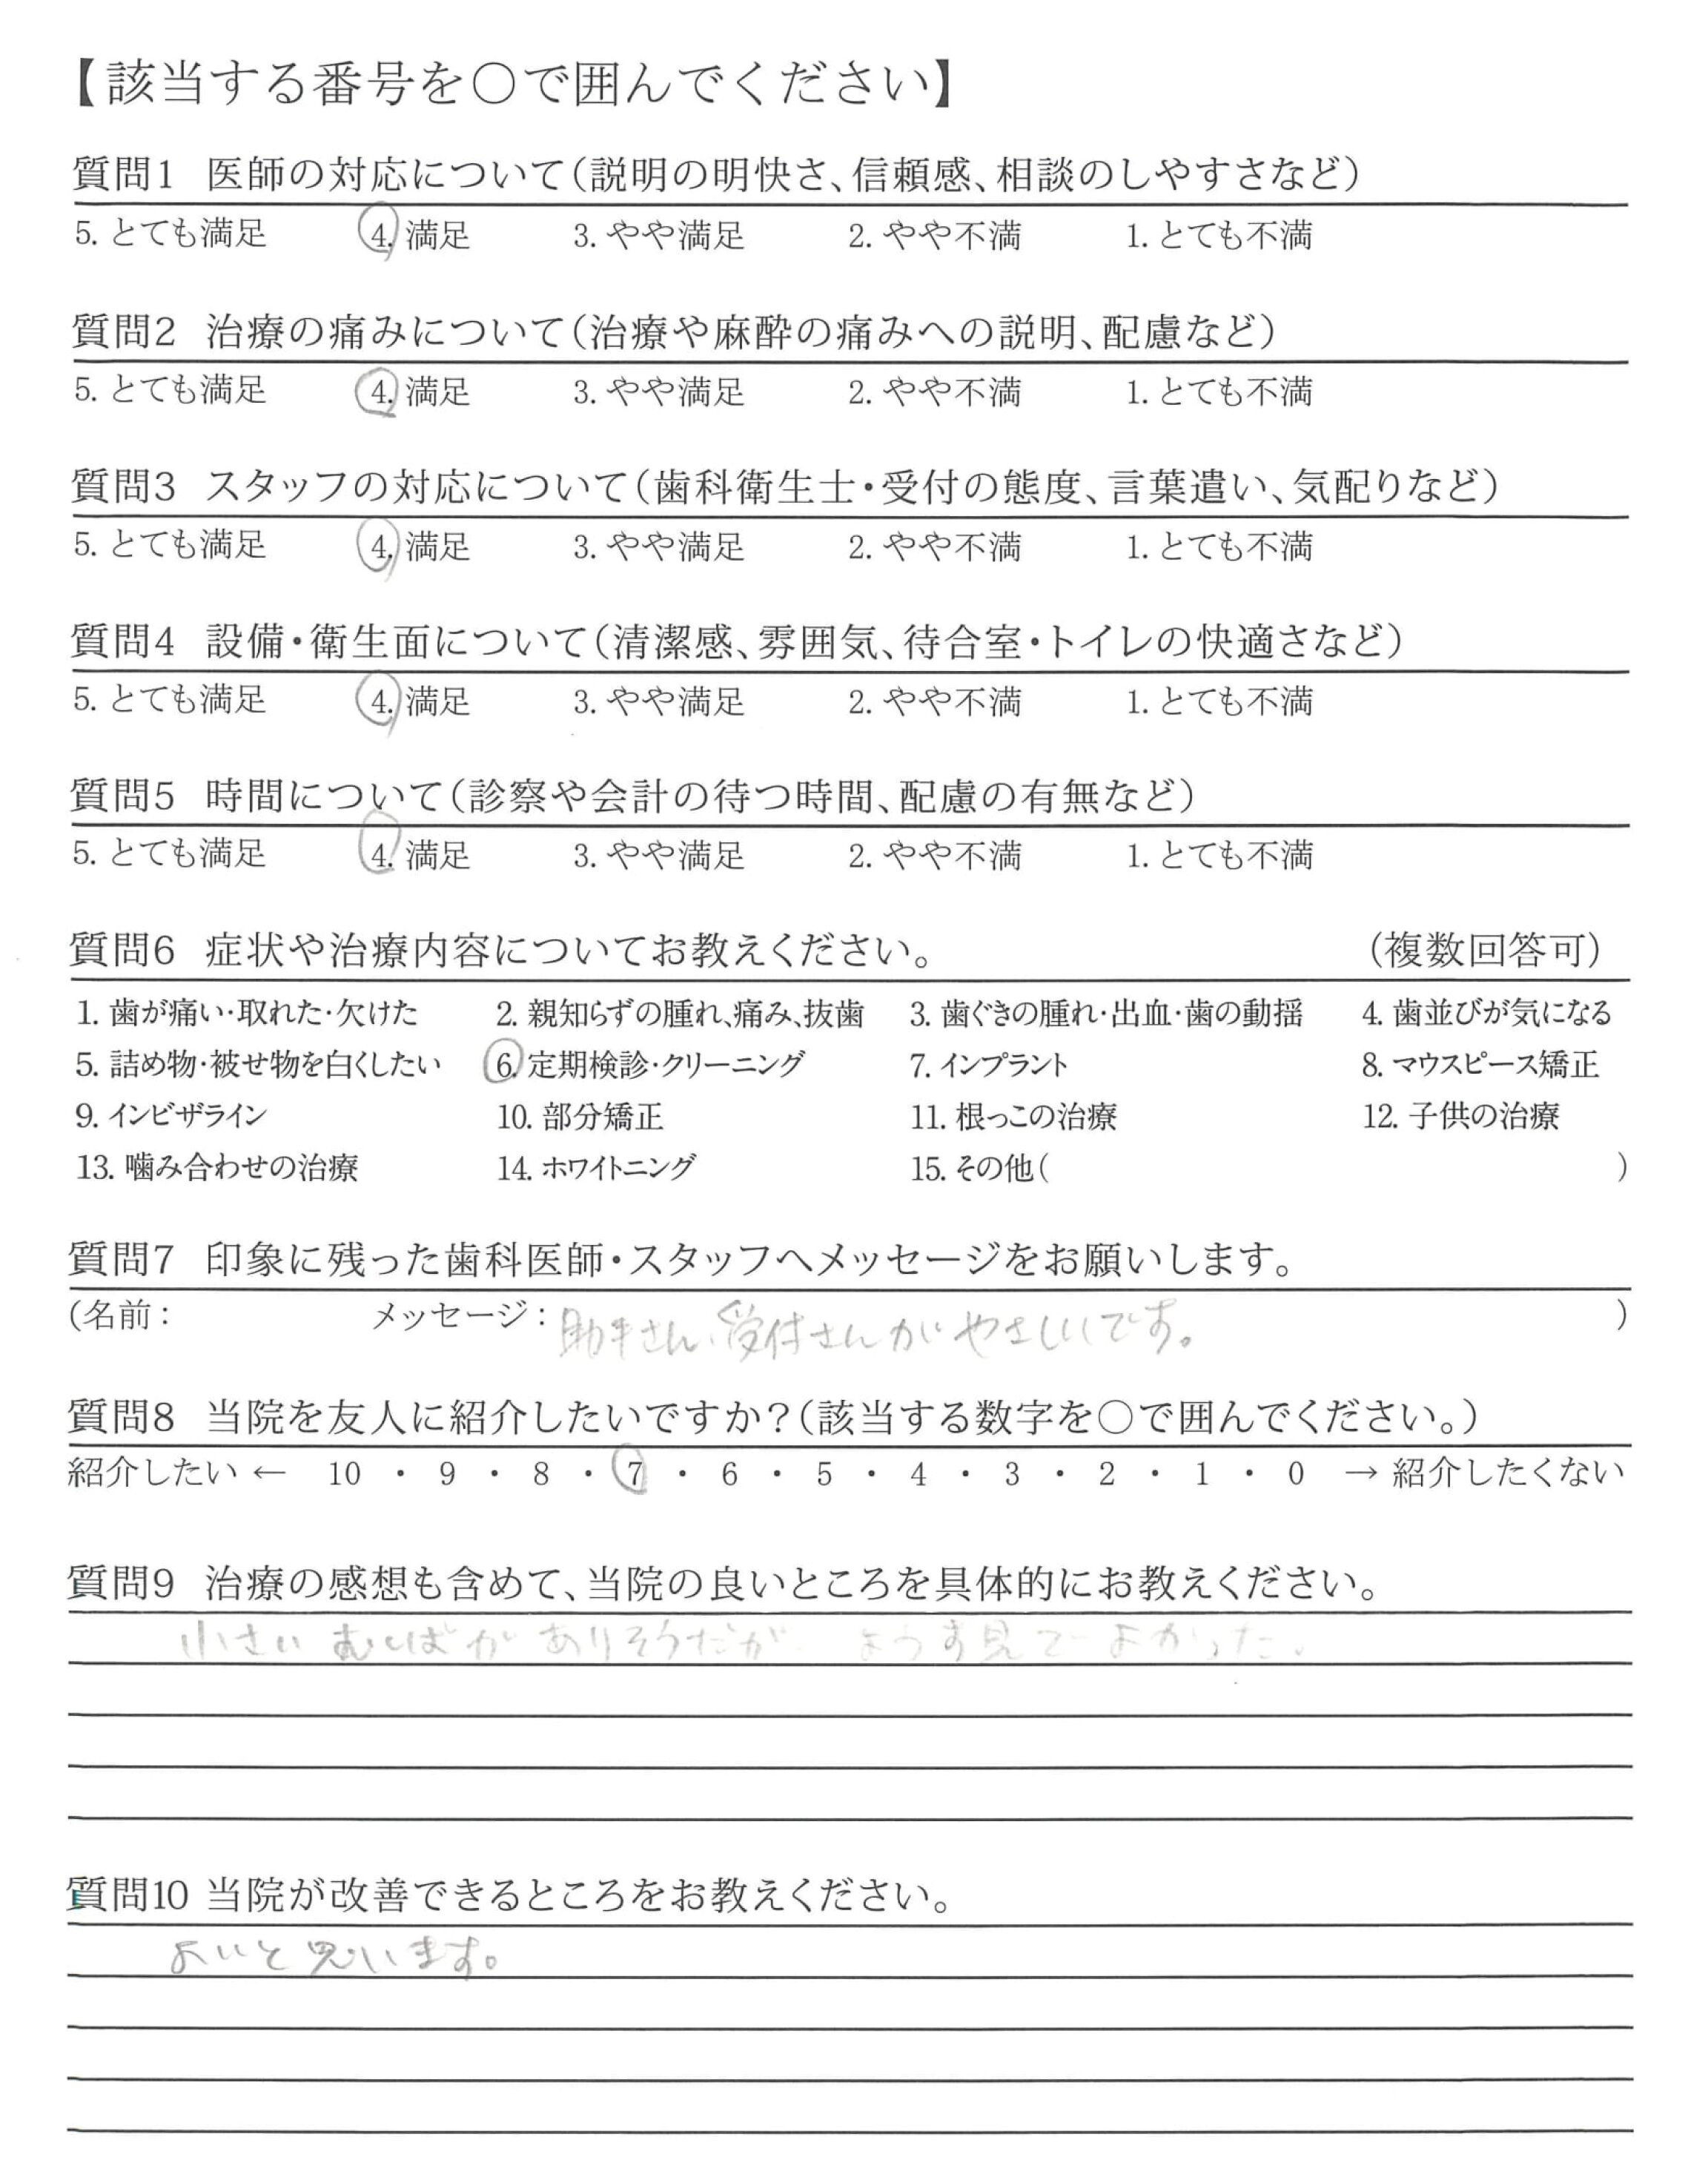 【該当する番号を○で囲んでください】
質問1 医師の対応について(説明の明快さ、信頼感、相談のしやすさなど)
5. とても満足 4. 満足 3. やや満足 2. やや不満 1. とても不満
質問2 治療の痛みについて(治療や麻酔の痛みへの説明、配慮など)
5. とても満足 4. 満足 3. やや満足 2. やや不満 1. とても不満
質問3 スタッフの対応について(歯科衛生士・受付の態度、言葉遣い、気配りなど)
5. とても満足 4. 満足 3. やや満足 2. やや不満 1. とても不満
質問4 設備・衛生面について(清潔感、雰囲気、待合室・トイレの快適さなど)
5. とても満足 4. 満足 3. やや満足 2. やや不満 1. とても不満
質問5 時間について(診察や会計の待つ時間、配慮の有無など)
5. とても満足 4. 満足 3. やや満足 2. やや不満 1. とても不満
質問6 症状や治療内容についてお教えください。 (複数回答可)
1. 歯が痛い・取れた・欠けた 2. 親知らずの腫れ、痛み、抜歯 3. 歯ぐきの腫れ・出血・歯の動揺 4. 歯並びが気になる
5. 詰め物・被せ物を白くしたい 6. 定期検診・クリーニング 7. インプラント 8. マウスピース矯正
9. インビザライン 10. 部分矯正 11. 根っこの治療 12. 子供の治療
13. 噛み合わせの治療 14. ホワイトニング 15. その他( )
質問7 印象に残った歯科医師・スタッフへメッセージをお願いします。
(名前: メッセージ: 助手さん、受付さんがやさしいです。 )
質問8 当院を友人に紹介したいですか?(該当する数字を○で囲んでください。)
紹介したい ← 10 ・ 9 ・ 8 ・ 7 ・ 6 ・ 5 ・ 4 ・ 3 ・ 2 ・ 1 ・ 0 → 紹介したくない
質問9 治療の感想も含めて、当院の良いところを具体的にお教えください。
小さい むしばが ありそうだが ようす見で よかった。
質問10 当院が改善できるところをお教えください。
よいと思います。